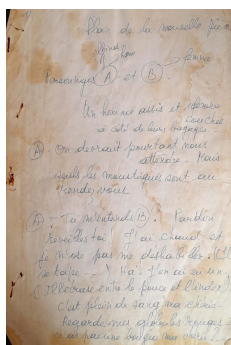 Plan de la nouvelle pièce
homme
femme
Personnages A et B.
Un homme assis et femme
couchée
à côté de leurs bagages
A. On devrait pourtant nous
attendre. Mais
seuls les moustiques sont au
rendez-vous
A - Tu m'entends B. Pardon
Réveille-toi ! J'ai chaud et
je n'ose pas me déshabiller. (Il
se tape...) Ha ! J'en ai eu un.
(Il l'écrase entre le pouce et l'index)
c'est plein de sang ma chérie
Regarde mes globules rouges